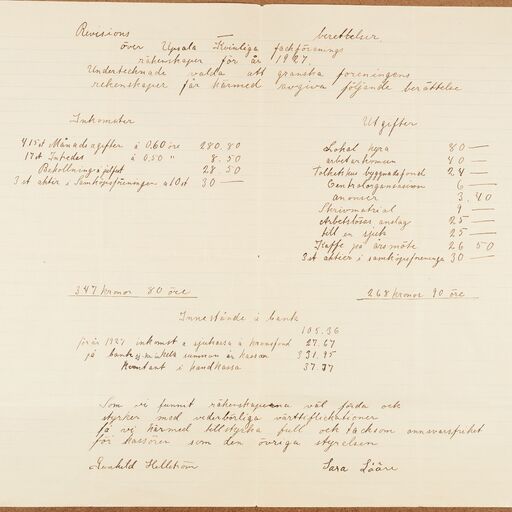 Revisions berettelser
över Upsala Kvinliga fackförenings
räkenskaper för år 1927.
Undertecknade valda att granska föreningens
rekenskaper får härmed avgiva följande berättelse
Inkomster
Utgifter
Månadsagifter à 0.60 öre 280.80
17 st Intredes à 0,50 " 8.50
28 50
3 st aktier i Samköpsföreningen a 10 st 30 —
Lokal hyra 80 —
arbetarkomun 40 —
byggnadsfond 24 —
Centralorganisasion 6 —
anonser 3.40
Skrivmatrial 9 —
Arbetslösas anslag 25 —
till en sjuk 25 —
Kaffe på årsmöte 26 50
3 st aktier i samköpsföreninga 30 —
347 kronor 80 öre
268 kronor 90 öre
Innestånde å bank
105.36
för år 1927 inkomst a sjukassa å 27.67
på bank summan är kassan 331.95
Kontant i handkassa 37.37
Som vi funnit räkenskaperna väl förda och
styrker med vederbörliga
få vi härmed tillstyrka full och tacksam annsvarsfrihet
för kassören som den övriga styrelsen
Gunhild Hellström
Sara Lööve